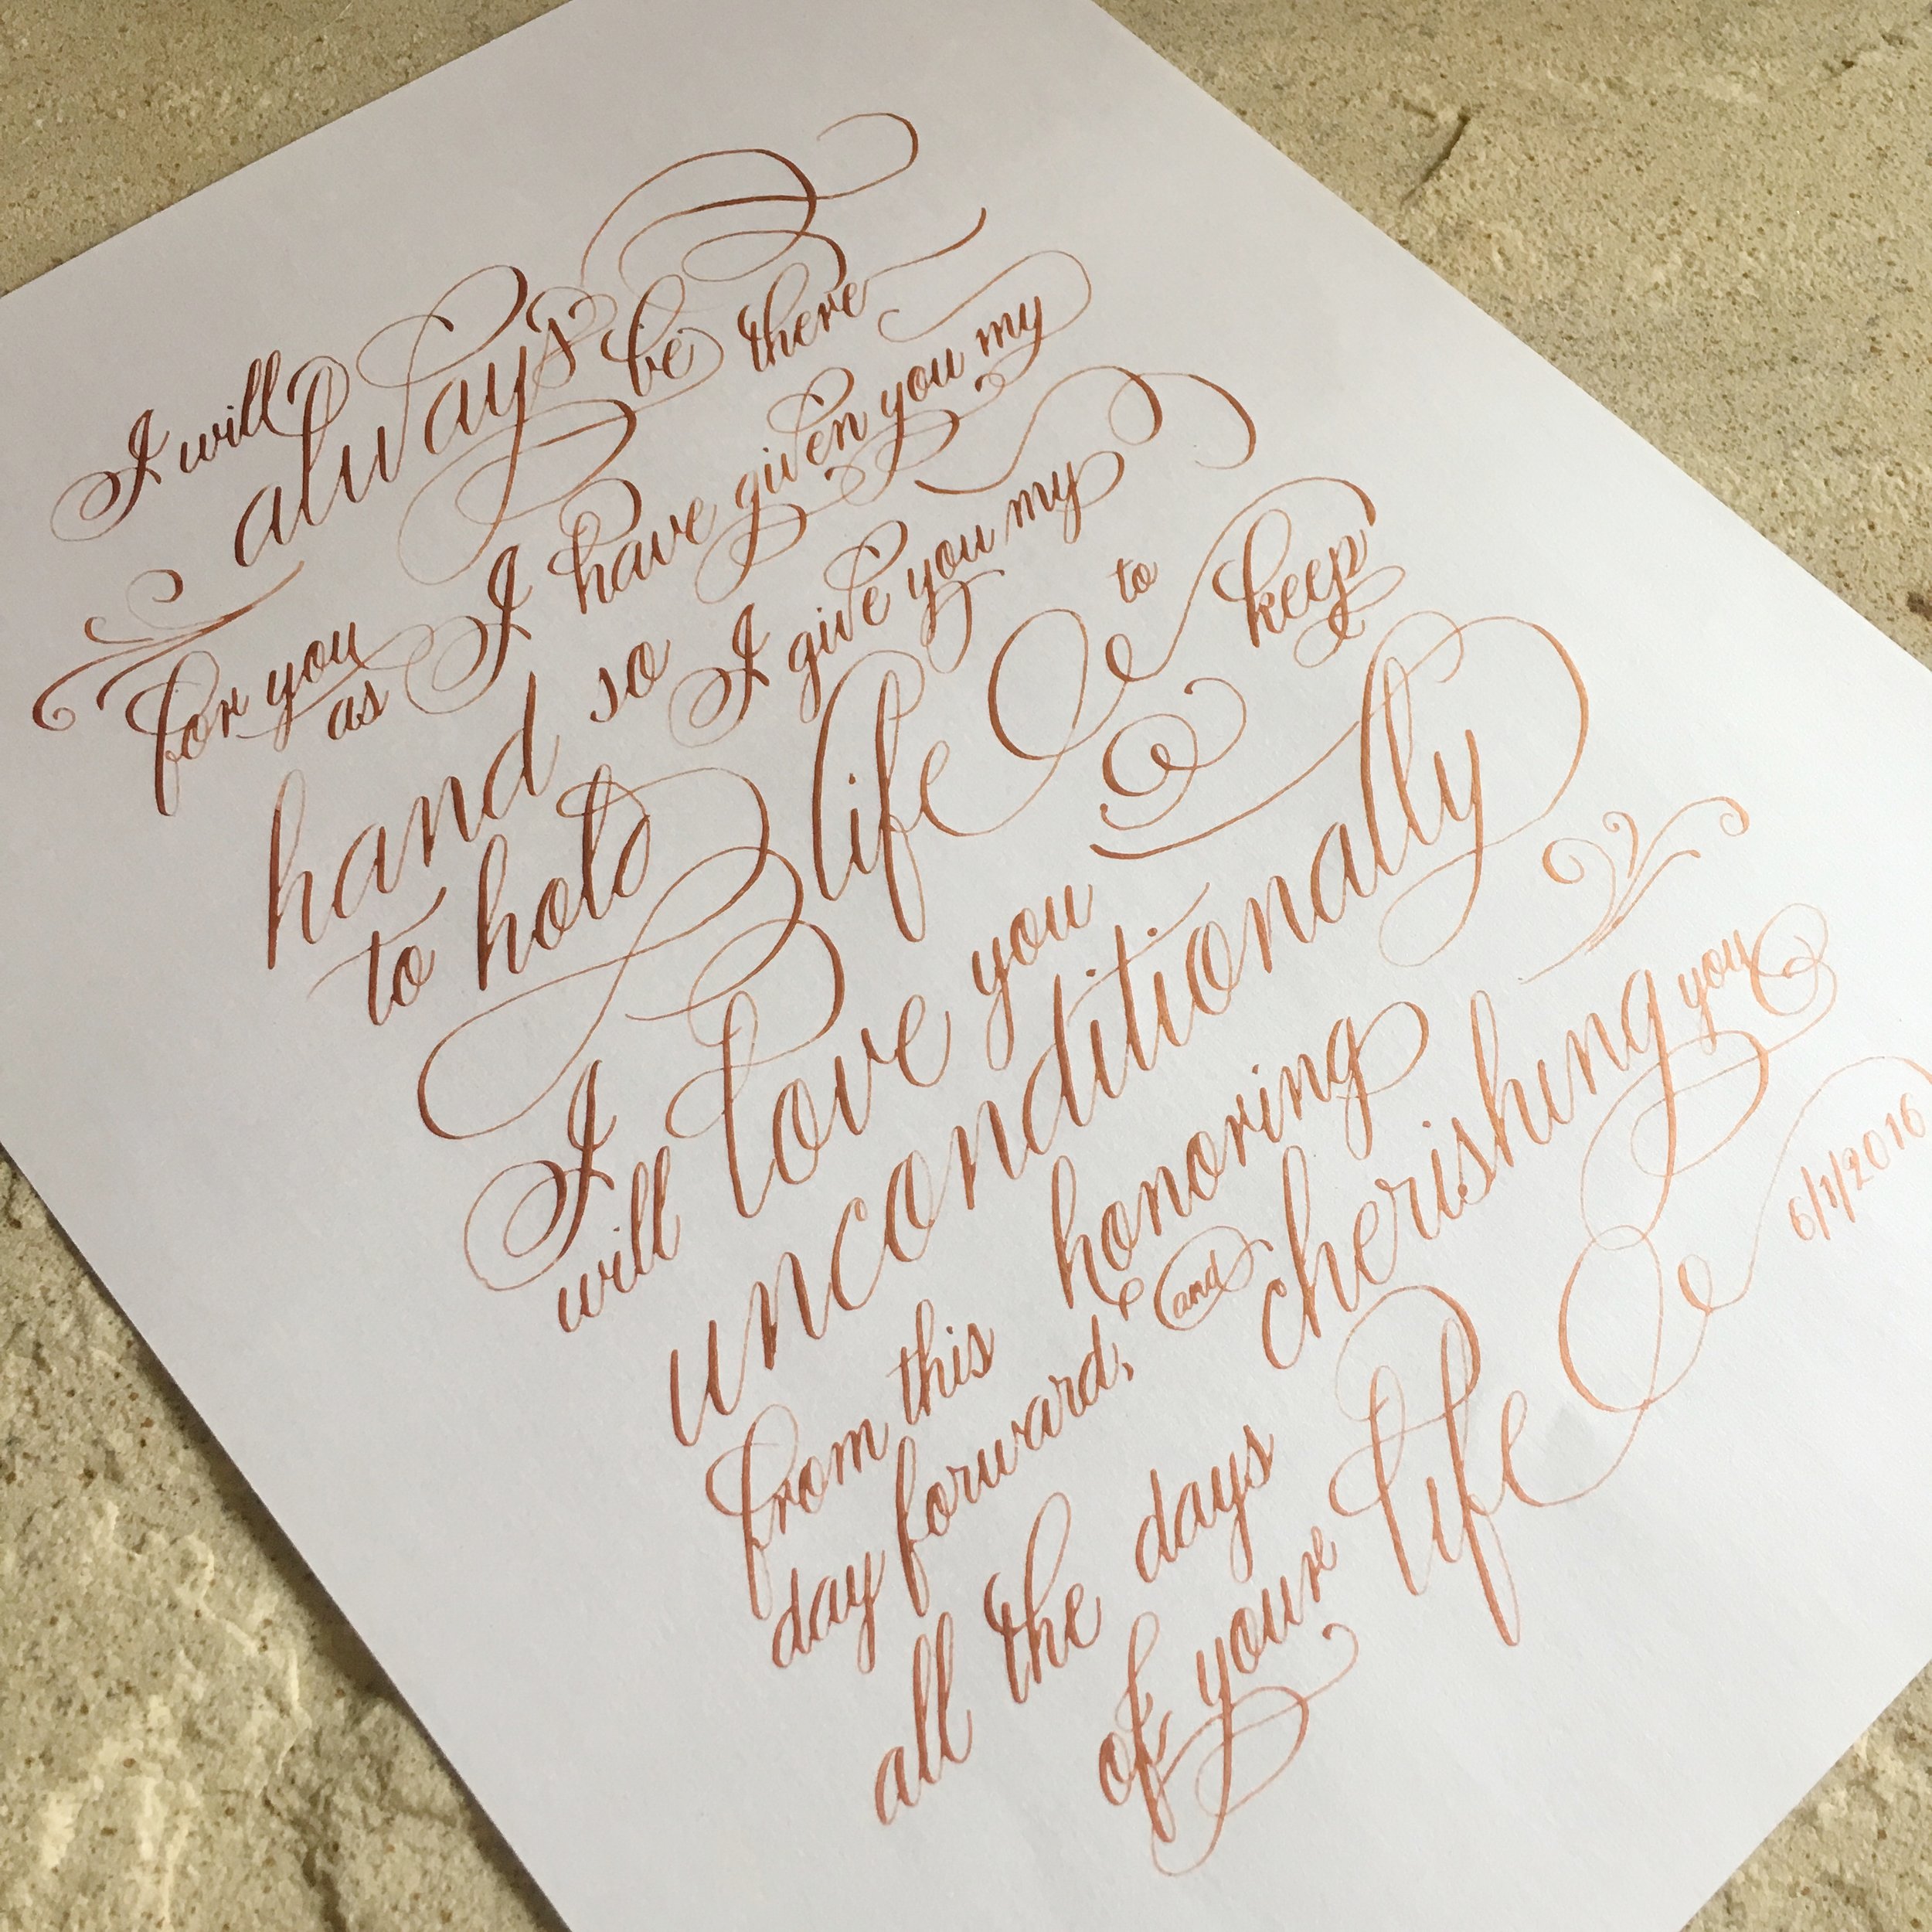 I will always be there
for you as I have given you my
hand to hold so I give you my
life to keep
I will love you
unconditionally
from this day forward,
honoring and cherishing you
all the days
of your life
6/1/2016